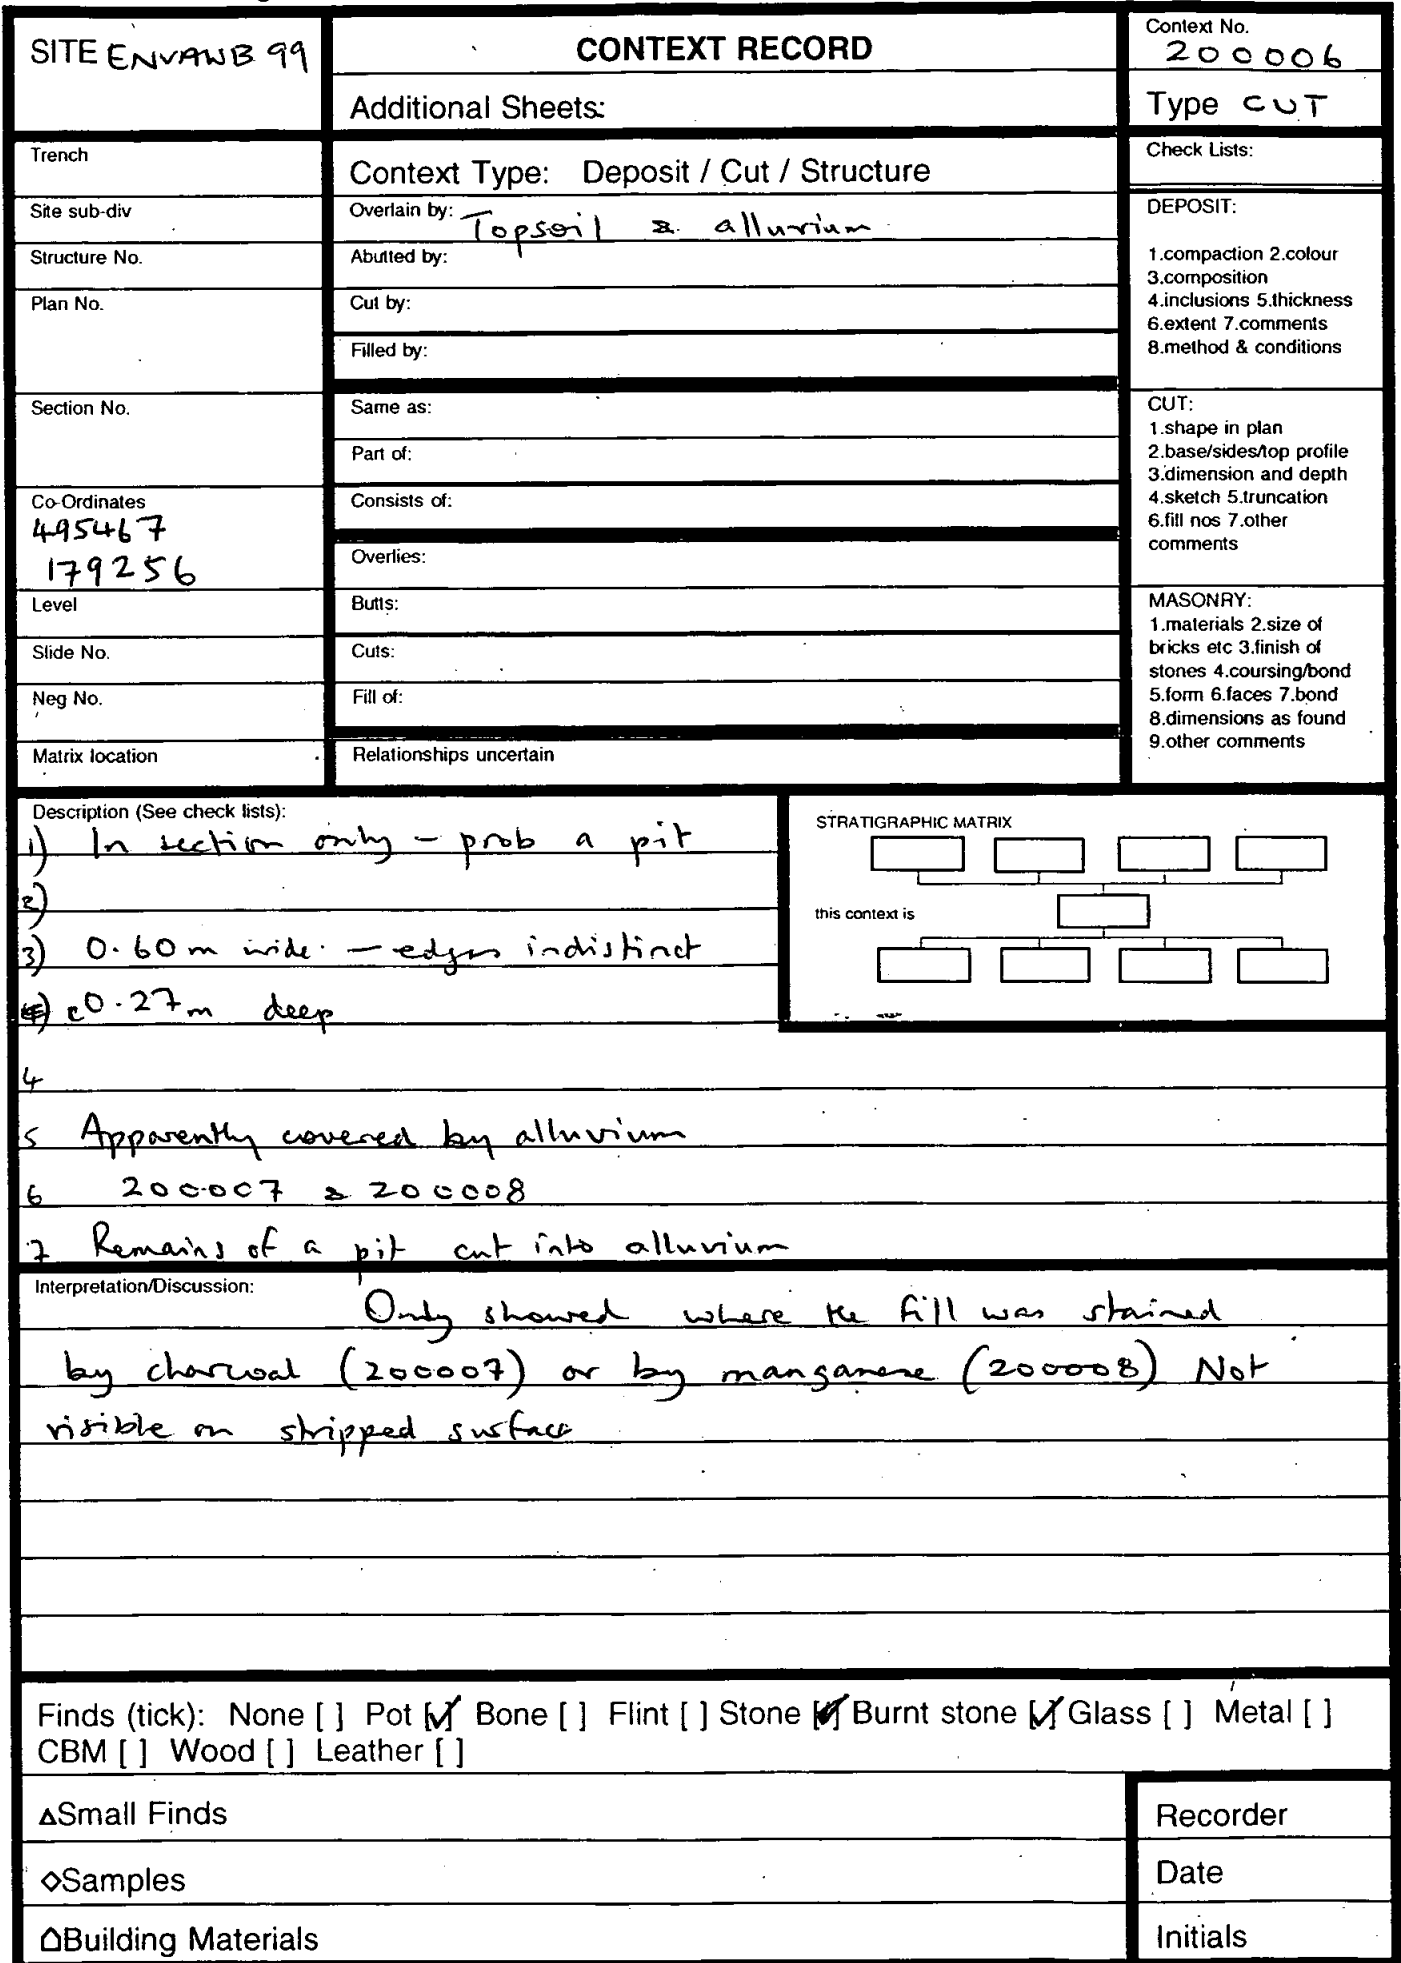 SITE ENVAWB 99
CONTEXT RECORD
Additional Sheets:
Context No.
200006
Type CUT
Trench
Site sub-div
Structure No.
Plan No.
Section No.
Co-Ordinates
495467
179256
Level
Slide No.
Neg No.
Matrix location
Context Type: Deposit / Cut / Structure
Overlain by: Topsoil & alluvium
Abutted by:
Cut by:
Filled by:
Same as:
Part of:
Consists of:
Overlies:
Butts:
Cuts:
Fill of:
Relationships uncertain
Check Lists:
DEPOSIT:
1.compaction 2.colour
3.composition
4.inclusions 5.thickness
6.extent 7.comments
8.method & conditions
CUT:
1.shape in plan
2.base/sides/top profile
3.dimension and depth
4.sketch 5.truncation
6.fill nos 7.other
comments
MASONRY:
1.materials 2.size of
bricks etc 3.finish of
stones 4.coursing/bond
5.form 6.faces 7.bond
8.dimensions as found
9.other comments
Description (See check lists):
1) In section only – prob a pit
2)
3) 0.60m wide. – edges indistinct
c0.27m deep
4
5 Apparently covered by alluvium
6 200007 & 200008
7 Remains of a pit cut into alluvium
STRATIGRAPHIC MATRIX
this context is
Interpretation/Discussion:
Only showed where the fill was stained
by charcoal (200007) or by manganese (200008) Not
visible on stripped surface
Finds (tick): None [ ] Pot [✓] Bone [ ] Flint [ ] Stone [✓] Burnt stone [✓] Glass [ ] Metal [ ]
CBM [ ] Wood [ ] Leather [ ]
△Small Finds
◇Samples
Building Materials
Recorder
Date
Initials